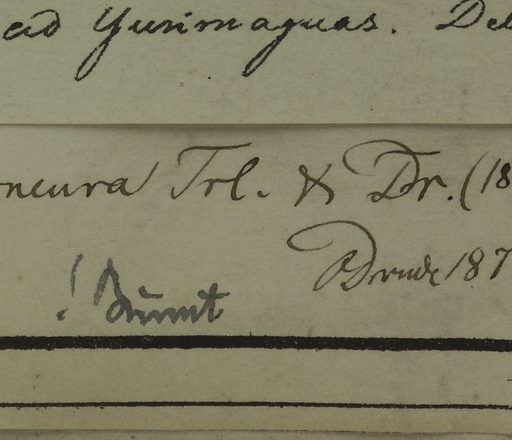 ad Yurimaguas. Del
neura Trl. & Dr. (18
Drude 187
! Burret